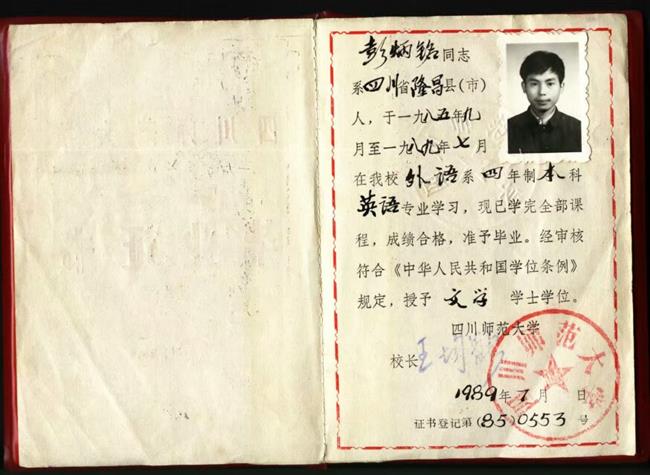 彭炳铭同志
系四川省隆昌县(市)
人，于一九八五年九
月至一九八九年七月
在我校外语系四年制本科
英语专业学习，现已学完全部课
程，成绩合格，准予毕业。经审核
符合《中华人民共和国学位条例》
规定，授予 文学 学士学位。
四川师范大学
校长
四川师范大学
1989年7月 日
证书登记第(85)0553号